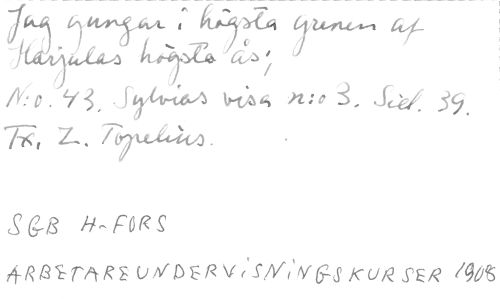 Jag gungar i högsta grenen af
Harjulas högsta ås;
N:o. 43. Sylvias visa n:o 3. Sid. 39.
Tx. Z. Topelius.
SGB H-FORS
ARBETAREUNDERVISNINGSKURSER 1908